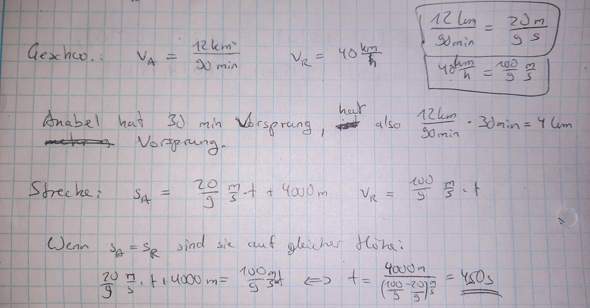 12 km / 90 min = 20 m / 9 s
40 km/h = 100/9 m/s
Geschw.: v_A = 12 km / 90 min v_R = 40 km/h
Anabel hat 30 min Vorsprung, hat also 12 km / 90 min · 30 min = 4 km
Vorsprung.
Strecke: s_A = 20/9 m/s · t + 4000 m v_R = 100/9 m/s · t
Wenn s_A = s_R sind sie auf gleicher Höhe:
20/9 m/s · t + 4000 m = 100/9 m/s t ⟺ t = 4000 m / (100/9 - 20/9) m/s = 450 s